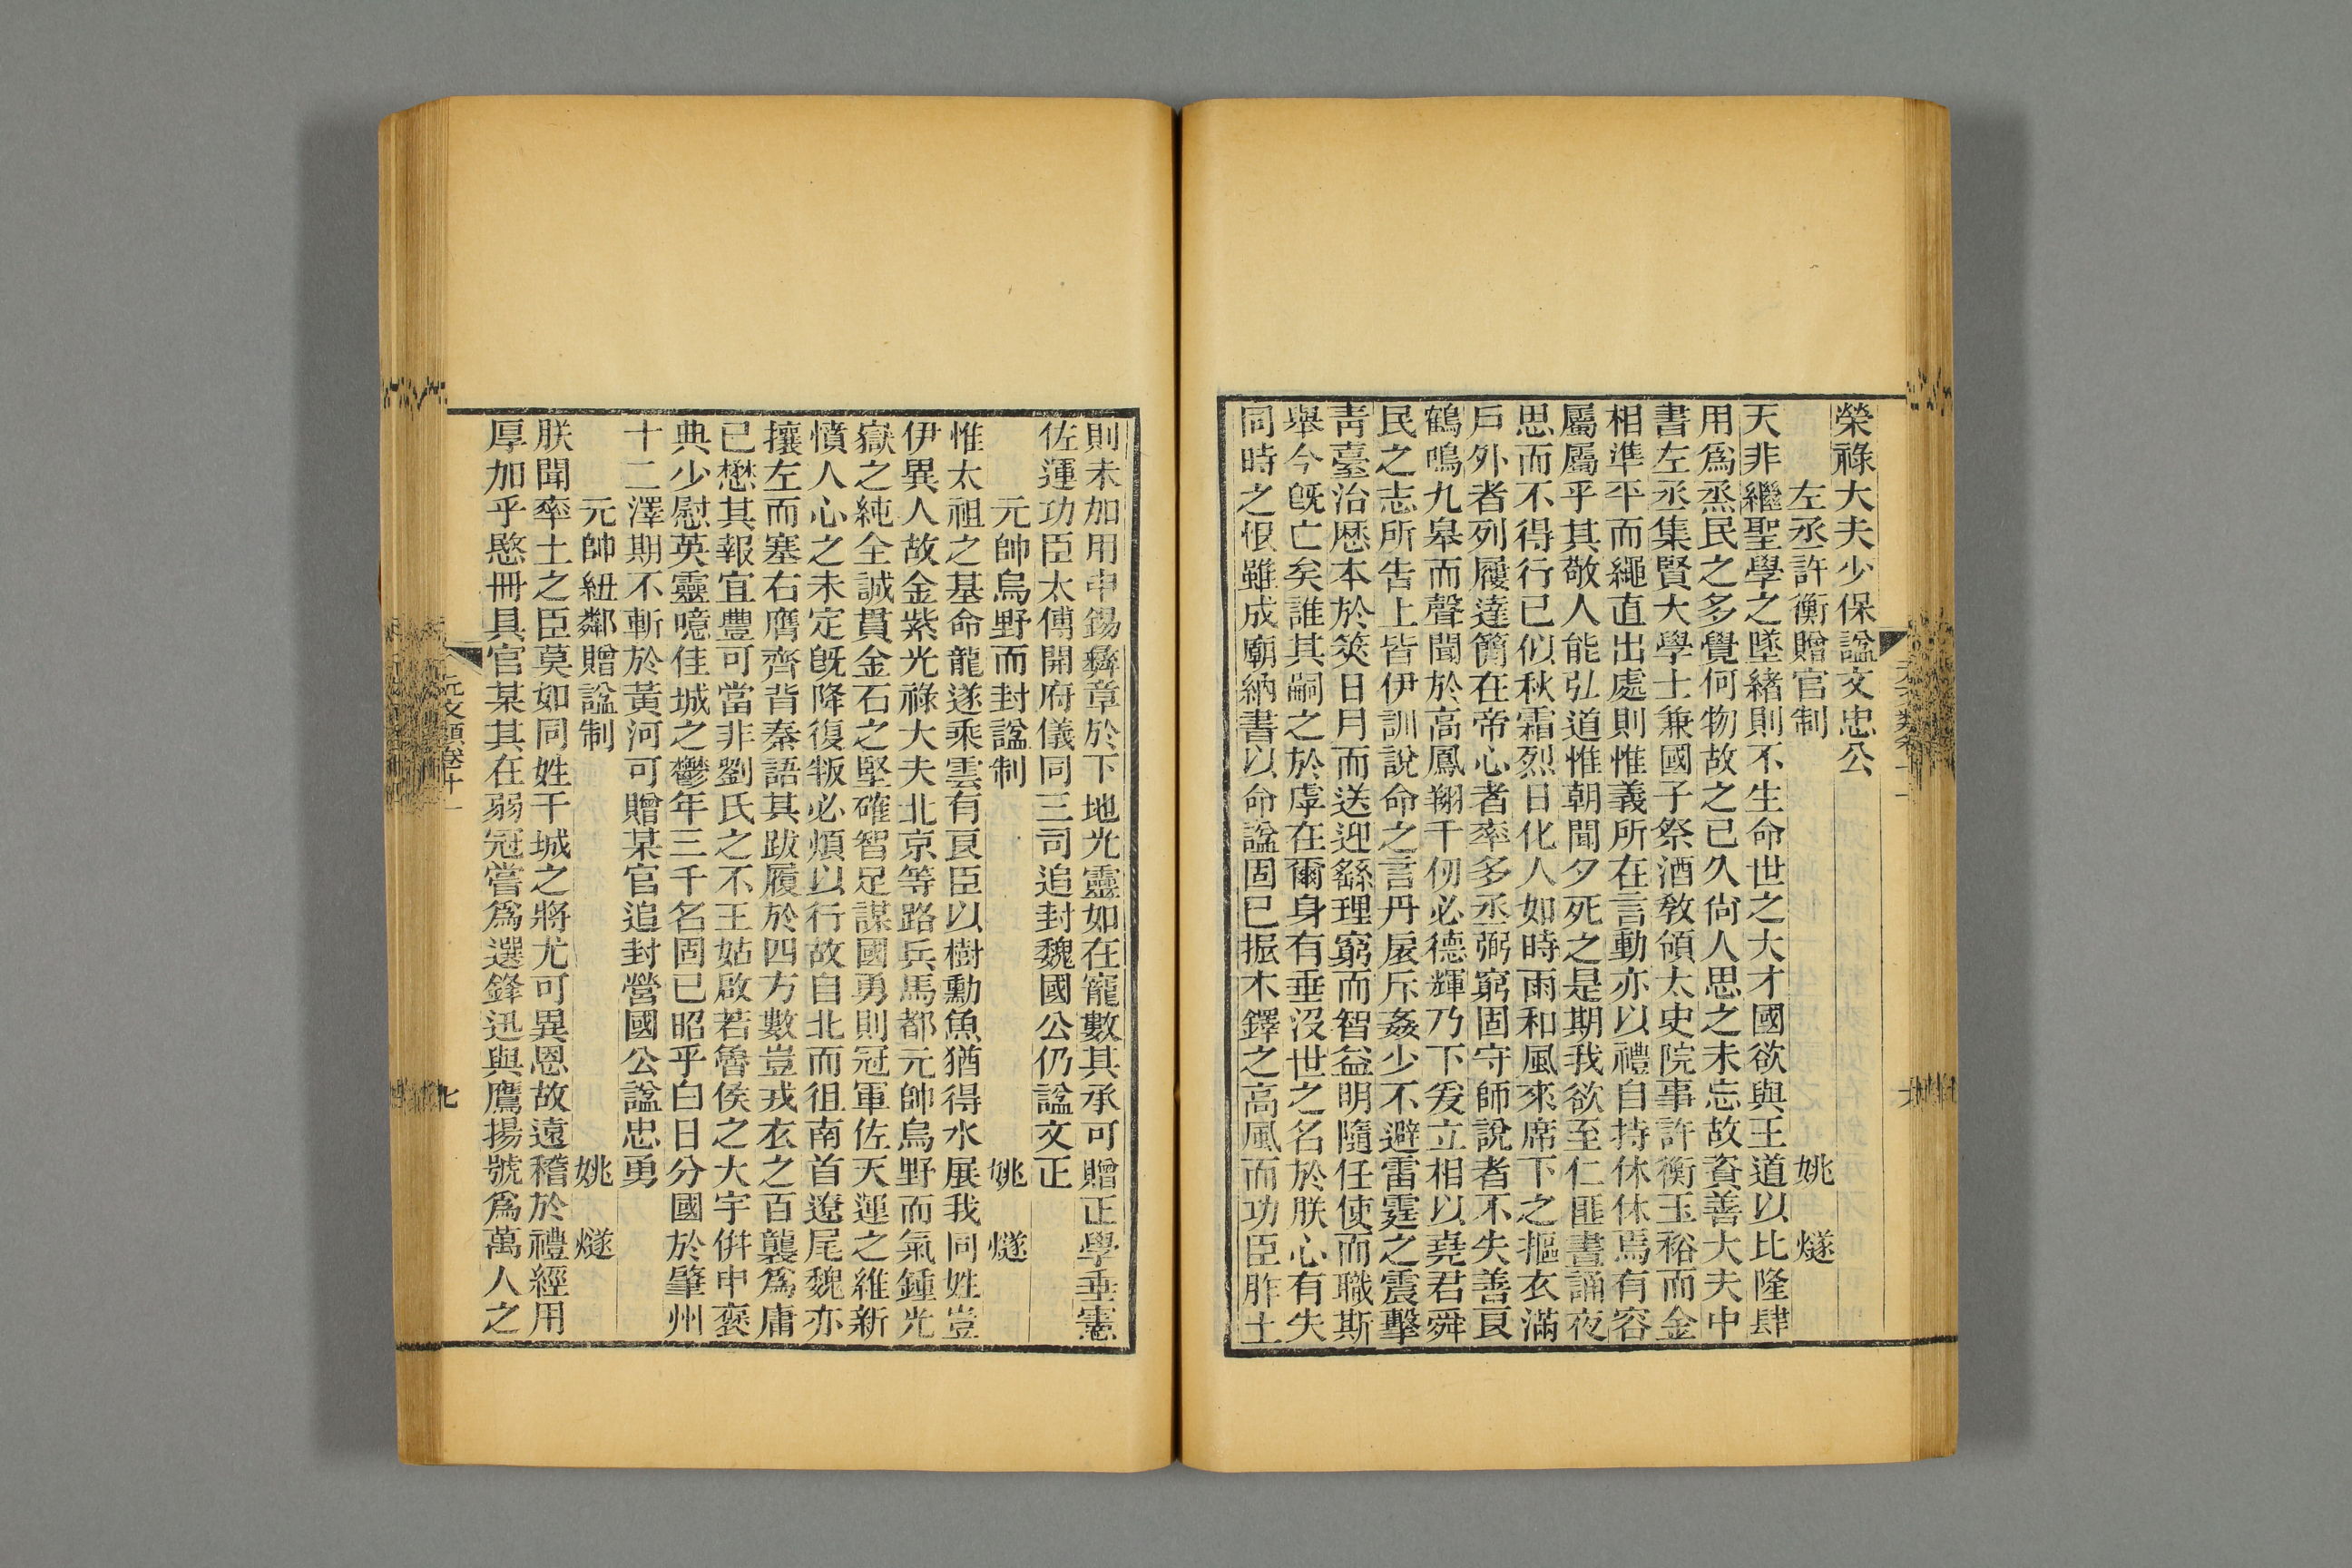 榮祿大夫少保諡文忠公
左丞許衡贈官制 姚 燧
天非繼聖學之墜緒則不生命世之大才國欲與王道以比隆肆
用爲烝民之多覺何物故之已久尙人思之未忘故資善大夫中
書左丞集賢大學士兼國子祭酒敎領太史院事許衡玉裕而金
相準平而繩直出處則惟義所在言動亦以禮自持休休焉有容
屬屬乎其敬人能弘道惟朝聞夕死之是期我欲至仁匪晝誦夜
思而不得行已似秋霜烈日化人如時雨和風來席下之摳衣滿
戶外者列屨達簡在帝心者率多丞弼窮固守師說者不失善良
鶴鳴九皋而聲聞於高鳳翔千仞必德輝乃下爰立相以堯君舜
民之志所告上皆伊訓說命之言丹扆斥姦少不避雷霆之震擊
靑臺治歷本於筴日月而送迎繇理窮而智益明隨任使而職斯
舉今旣亡矣誰其嗣之於虖在爾身有垂沒世之名於朕心有失
同時之恨雖成廟納書以命諡固已振木鐸之高風而功臣胙土
則未加用申錫彝章於下地光靈如在寵數其承可贈正學垂憲
佐運功臣太傅開府儀同三司追封魏國公仍諡文正
元帥烏野而封諡制 姚 燧
惟太祖之基命龍遂乘雲有良臣以樹勳魚猶得水展我同姓豈
伊異人故金紫光祿大夫北京等路兵馬都元帥烏野而氣鍾光
嶽之純全誠貫金石之堅確智足謀國勇則冠軍佐天運之維新
憤人心之未定旣降復叛必煩以行故自北而徂南首遼尾魏亦
攘左而塞右膺齊背秦語其跋履於四方數豈戎衣之百襲爲庸
已懋其報宜豐可當非劉氏之不王姑啟若魯侯之大宇倂申褒
典少慰英靈噫佳城之鬱年三千名固已昭乎白日分國於肇州
十二澤期不斬於黃河可贈某官追封營國公諡忠勇
元帥紐鄰贈諡制 姚 燧
朕聞率土之臣莫如同姓干城之將尤可異恩故遠稽於禮經用
厚加乎愍冊具官某其在弱冠嘗爲選鋒迅與鷹揚號爲萬人之
元文類卷十一
七